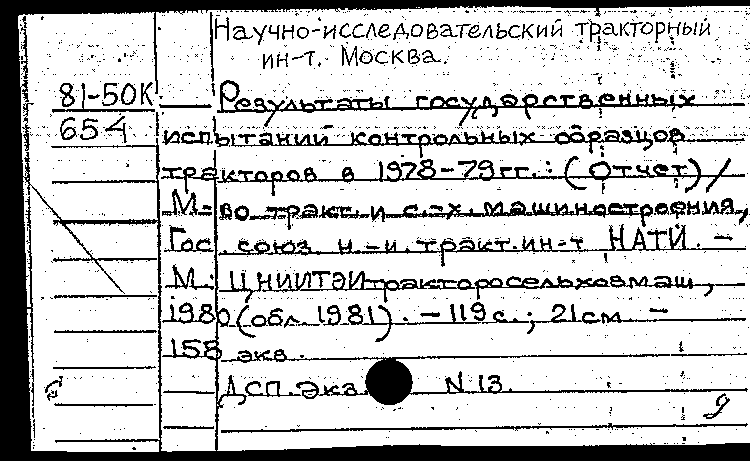 Научно-исследовательский тракторный
ин-т. Москва.
81-50К Результаты государственных
654 испытаний контрольных образцов
тракторов в 1978-79 гг.: (Отчет) /
М-во тракт. и с.-х. машиностроения,
Гос. союз. н.-и. тракт. ин-т НАТИ. -
М.: ЦНИИТЭИтракторосельхозмаш,
1980 (обл. 1981). - 119 с.; 21 см -
158 экз.
ДСП. Экз. N 13.